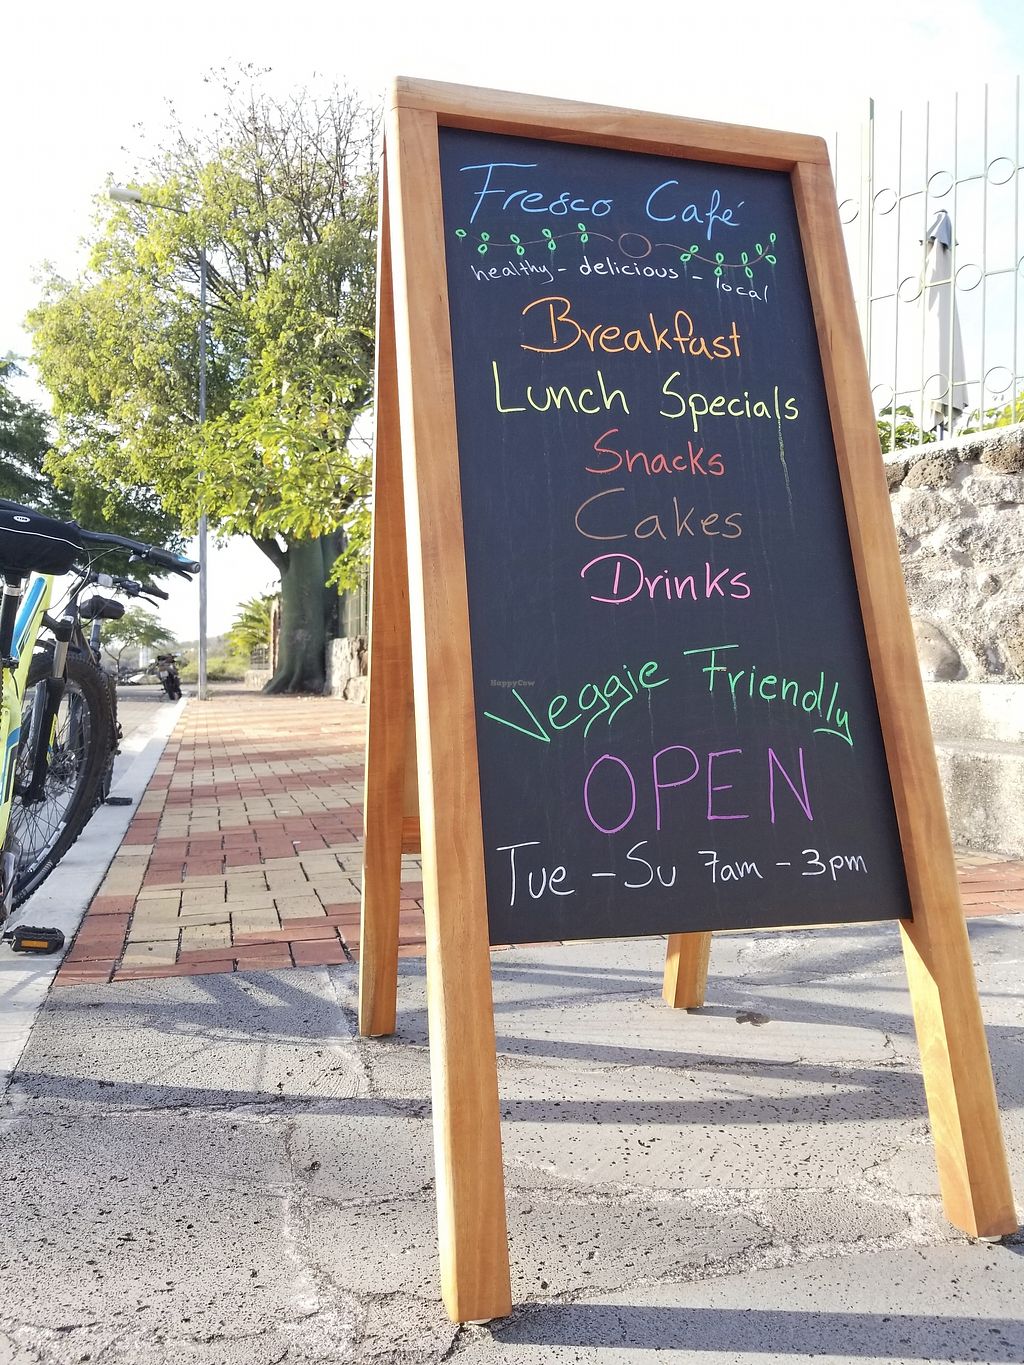 Fresco Café
healthy - delicious - local
Breakfast
Lunch Specials
Snacks
Cakes
Drinks
HappyCow
Veggie Friendly
OPEN
Tue - Su 7am - 3pm